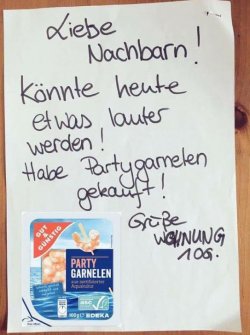 Liebe
Nachbarn!
Könnte heute
etwas lauter
werden!
Habe Partygarnelen
gekauft!
Grüße
WOHNUNG
10G.
GUT &
GÜNSTIG
PARTY
GARNELEN
aus zertifizierter
Aquakultur
100g
EDEKA